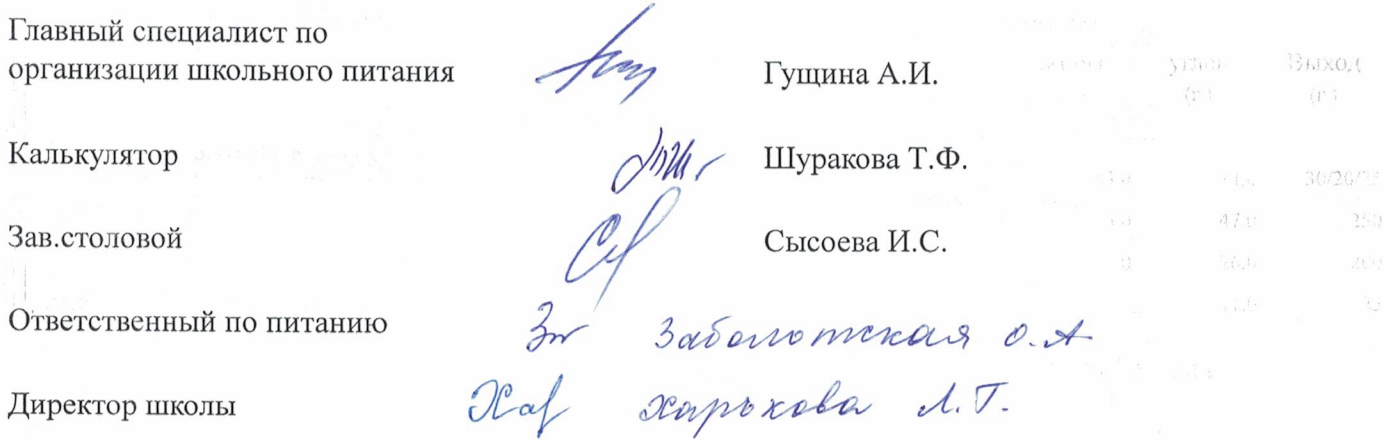 Главный специалист по
организации школьного питания Гущина А.И.
Калькулятор Шуракова Т.Ф.
Зав.столовой Сысоева И.С.
Ответственный по питанию Заболотская О.А
Директор школы Харькова Л.Г.